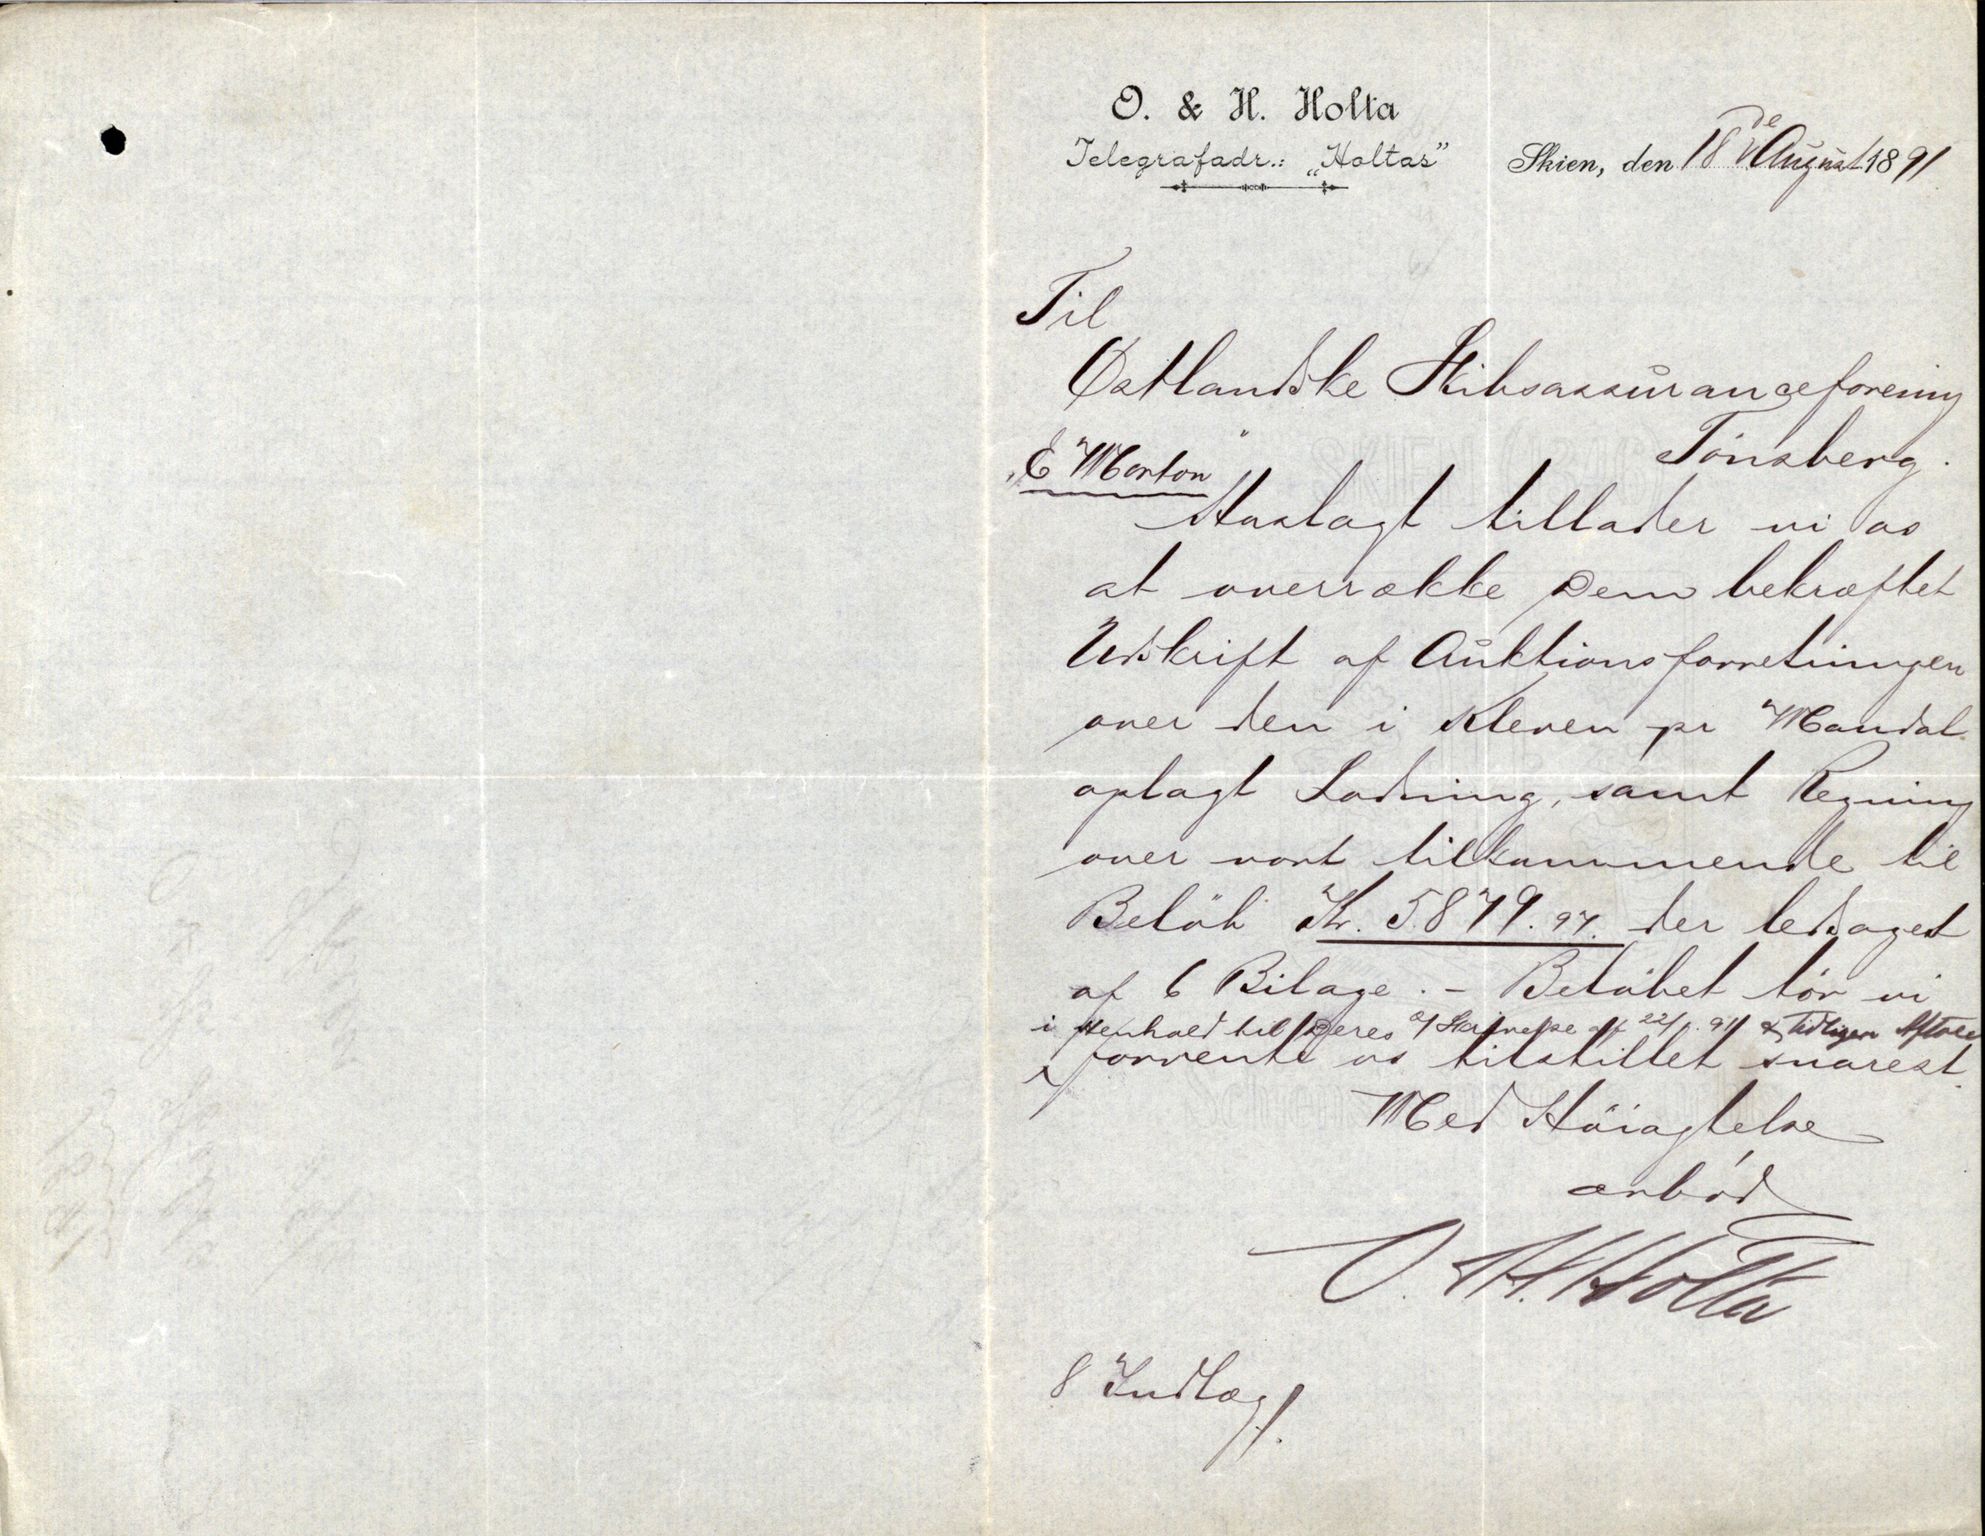 O. & H. Holta
Telegrafadr.: „Holtas”
Skien, den 18de August 1891
Til
Østlandske Skibsassuranceforening
Tönsberg.
„E Morton”
Hoslagt tillader vi os
at overrække Dem bekræftet
Udskrift af Auktionsforretningen
over den i Kleven pr Mandal
oplagt Ladning, samt Regning
over vort tilkommende til
Belöb Kr. 5879.97. der ledsaget
af 6 Bilage. – Belöbet tör vi
i Henhold til Deres af 22/ 91 & Tidligere Aftale
forvente os tilstillet snarest.
Med Höiagtelse
ærböd
O. & H. Holta
8 Indlæg/.